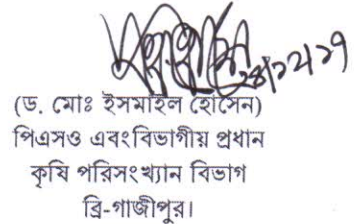 (ড. মোঃ ইসমাইল হোসেন)
পিএসও এবংবিভাগীয় প্রধান
কৃষি পরিসংখ্যান বিভাগ
ব্রি-গাজীপুর।